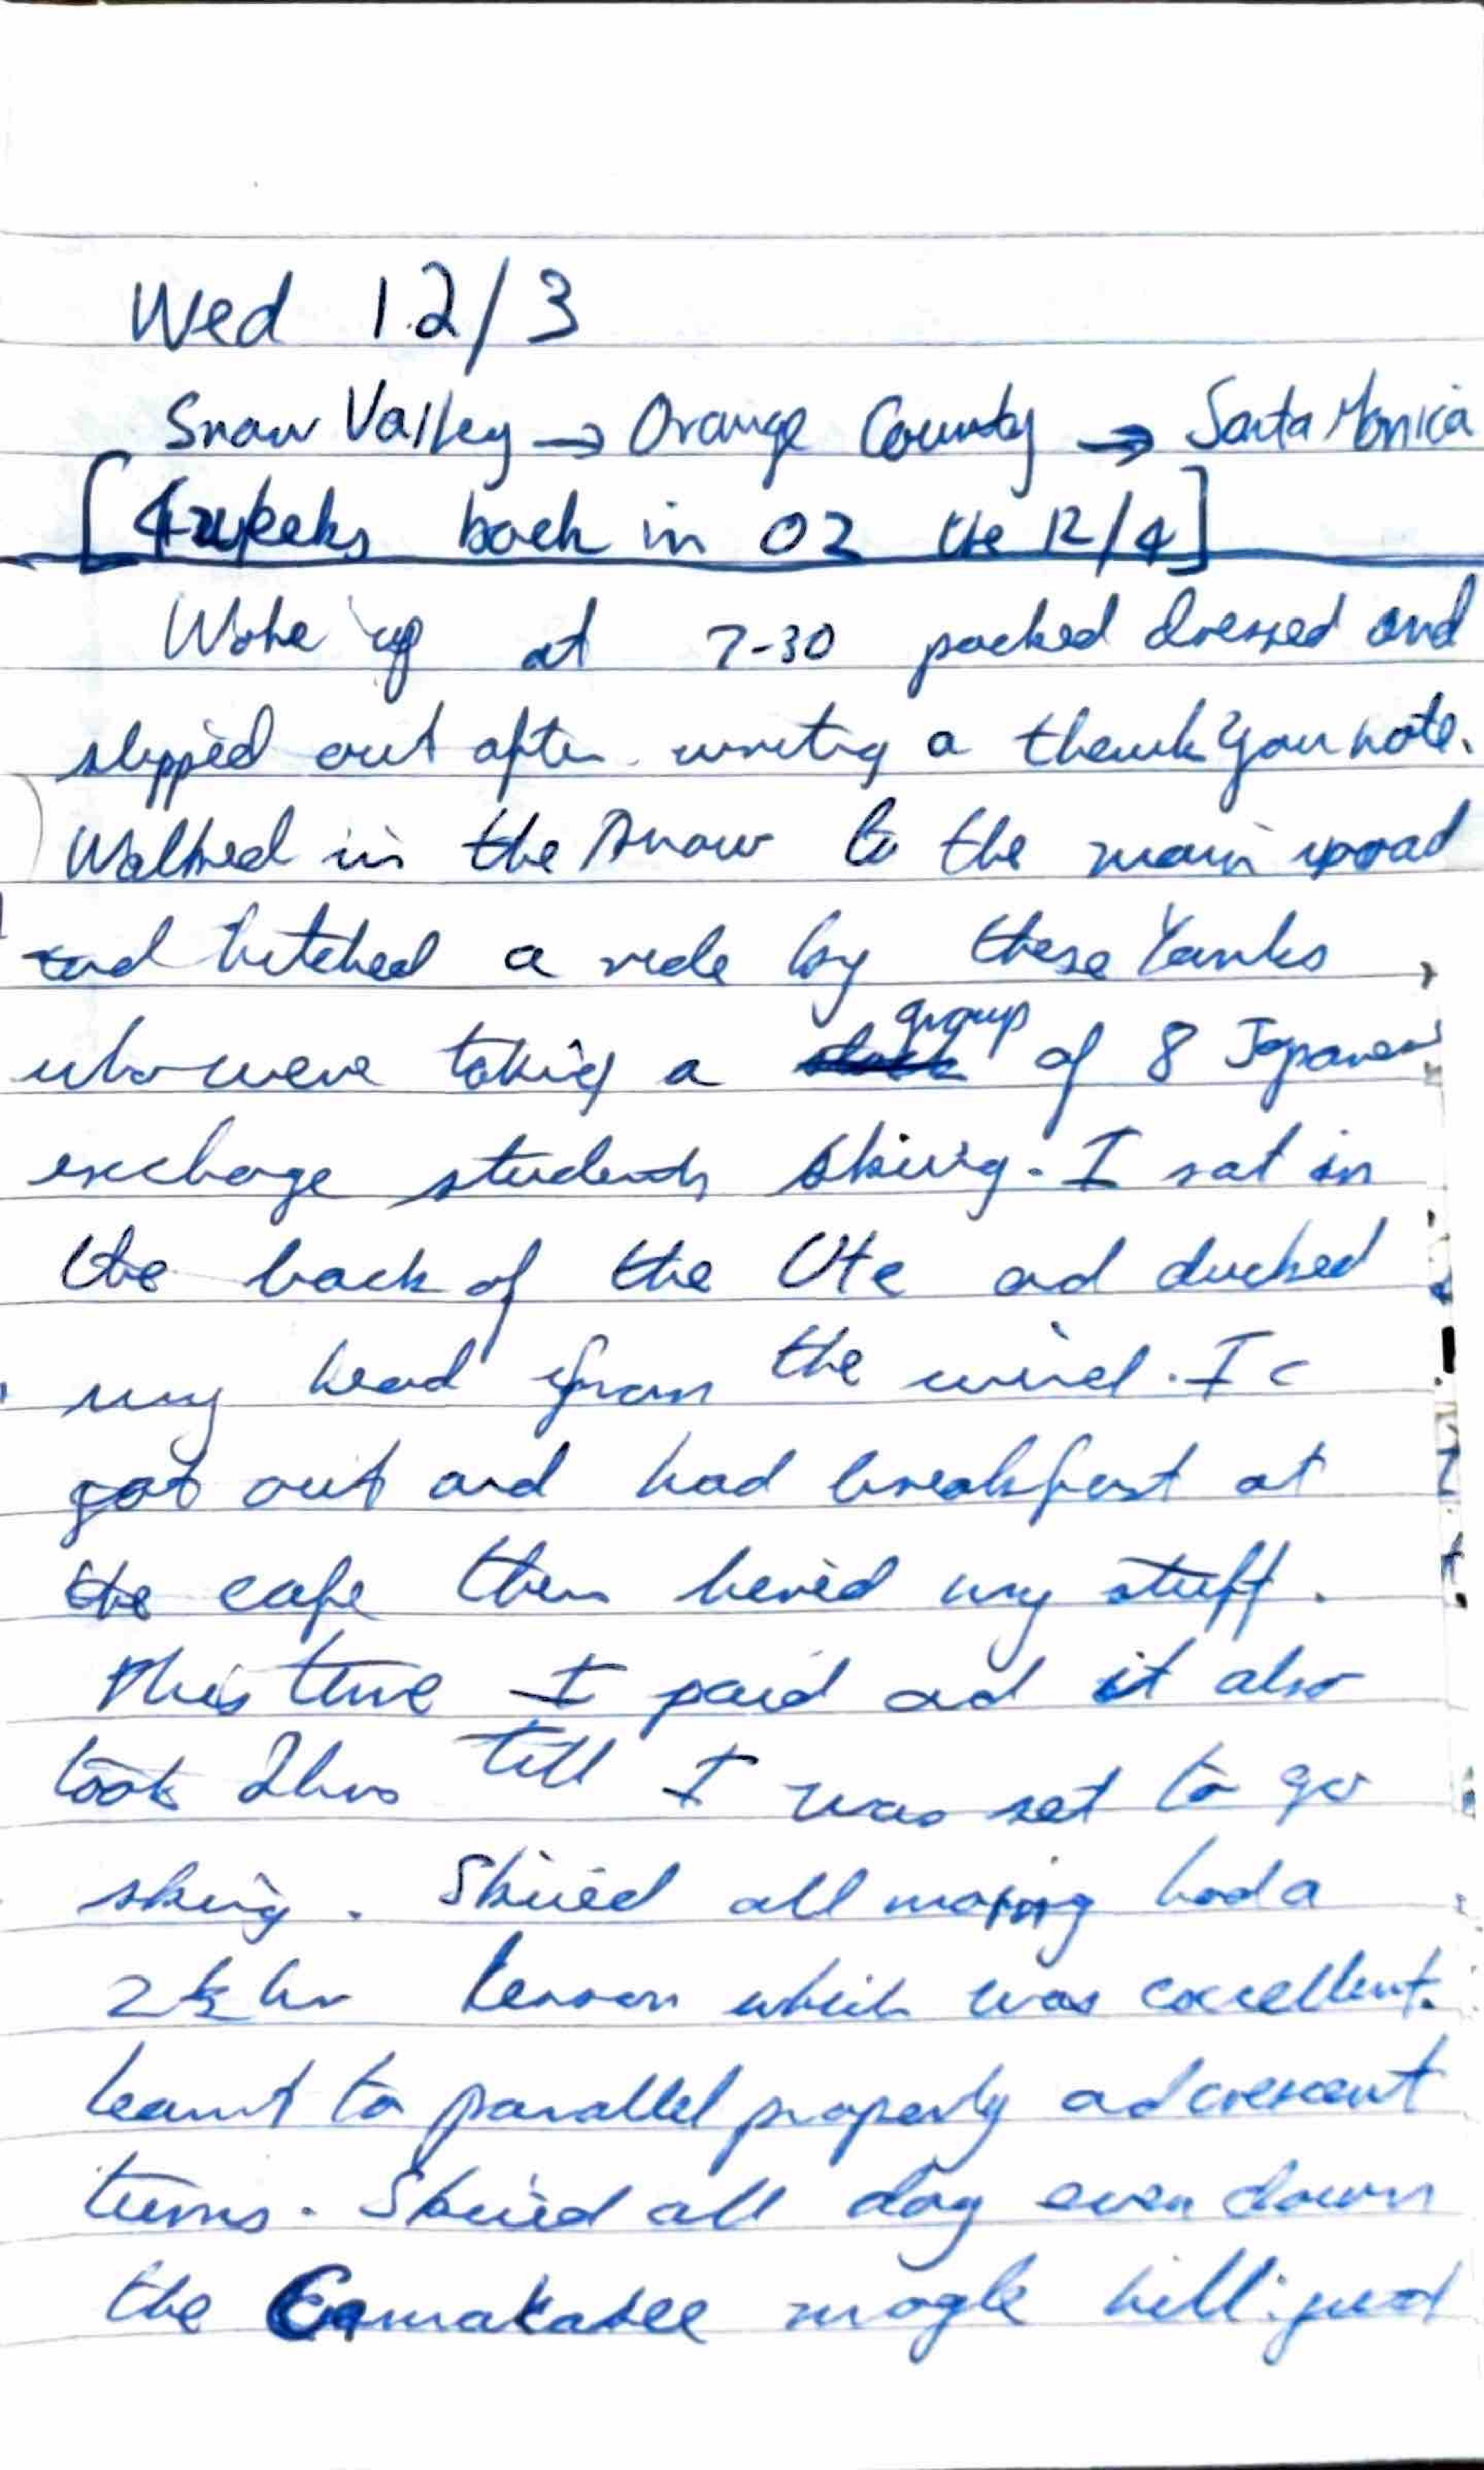 Wed 12/3
Snow Valley → Orange County → Santa Monica
[4 weeks back in OZ the 12/4]
Woke up at 7-30 packed dressed and
slipped out after writing a thank you note.
Walked in the snow to the main road
and hitched a ride by these Yanks,
who were taking a group of 8 Japanese
exchange students skiing. I sat in
the back of the Ute ad ducked
my head from the wind. I
got out and had breakfast at
the cafe then hired my stuff.
This time I paid ad it also
took 2hrs till I was set to go
skiing. Skiied all morning had a
2½ hr lesson which was excellent.
learnt to parallel properly ad crescent
turns. Skiied all day even down
the mogle hill. just